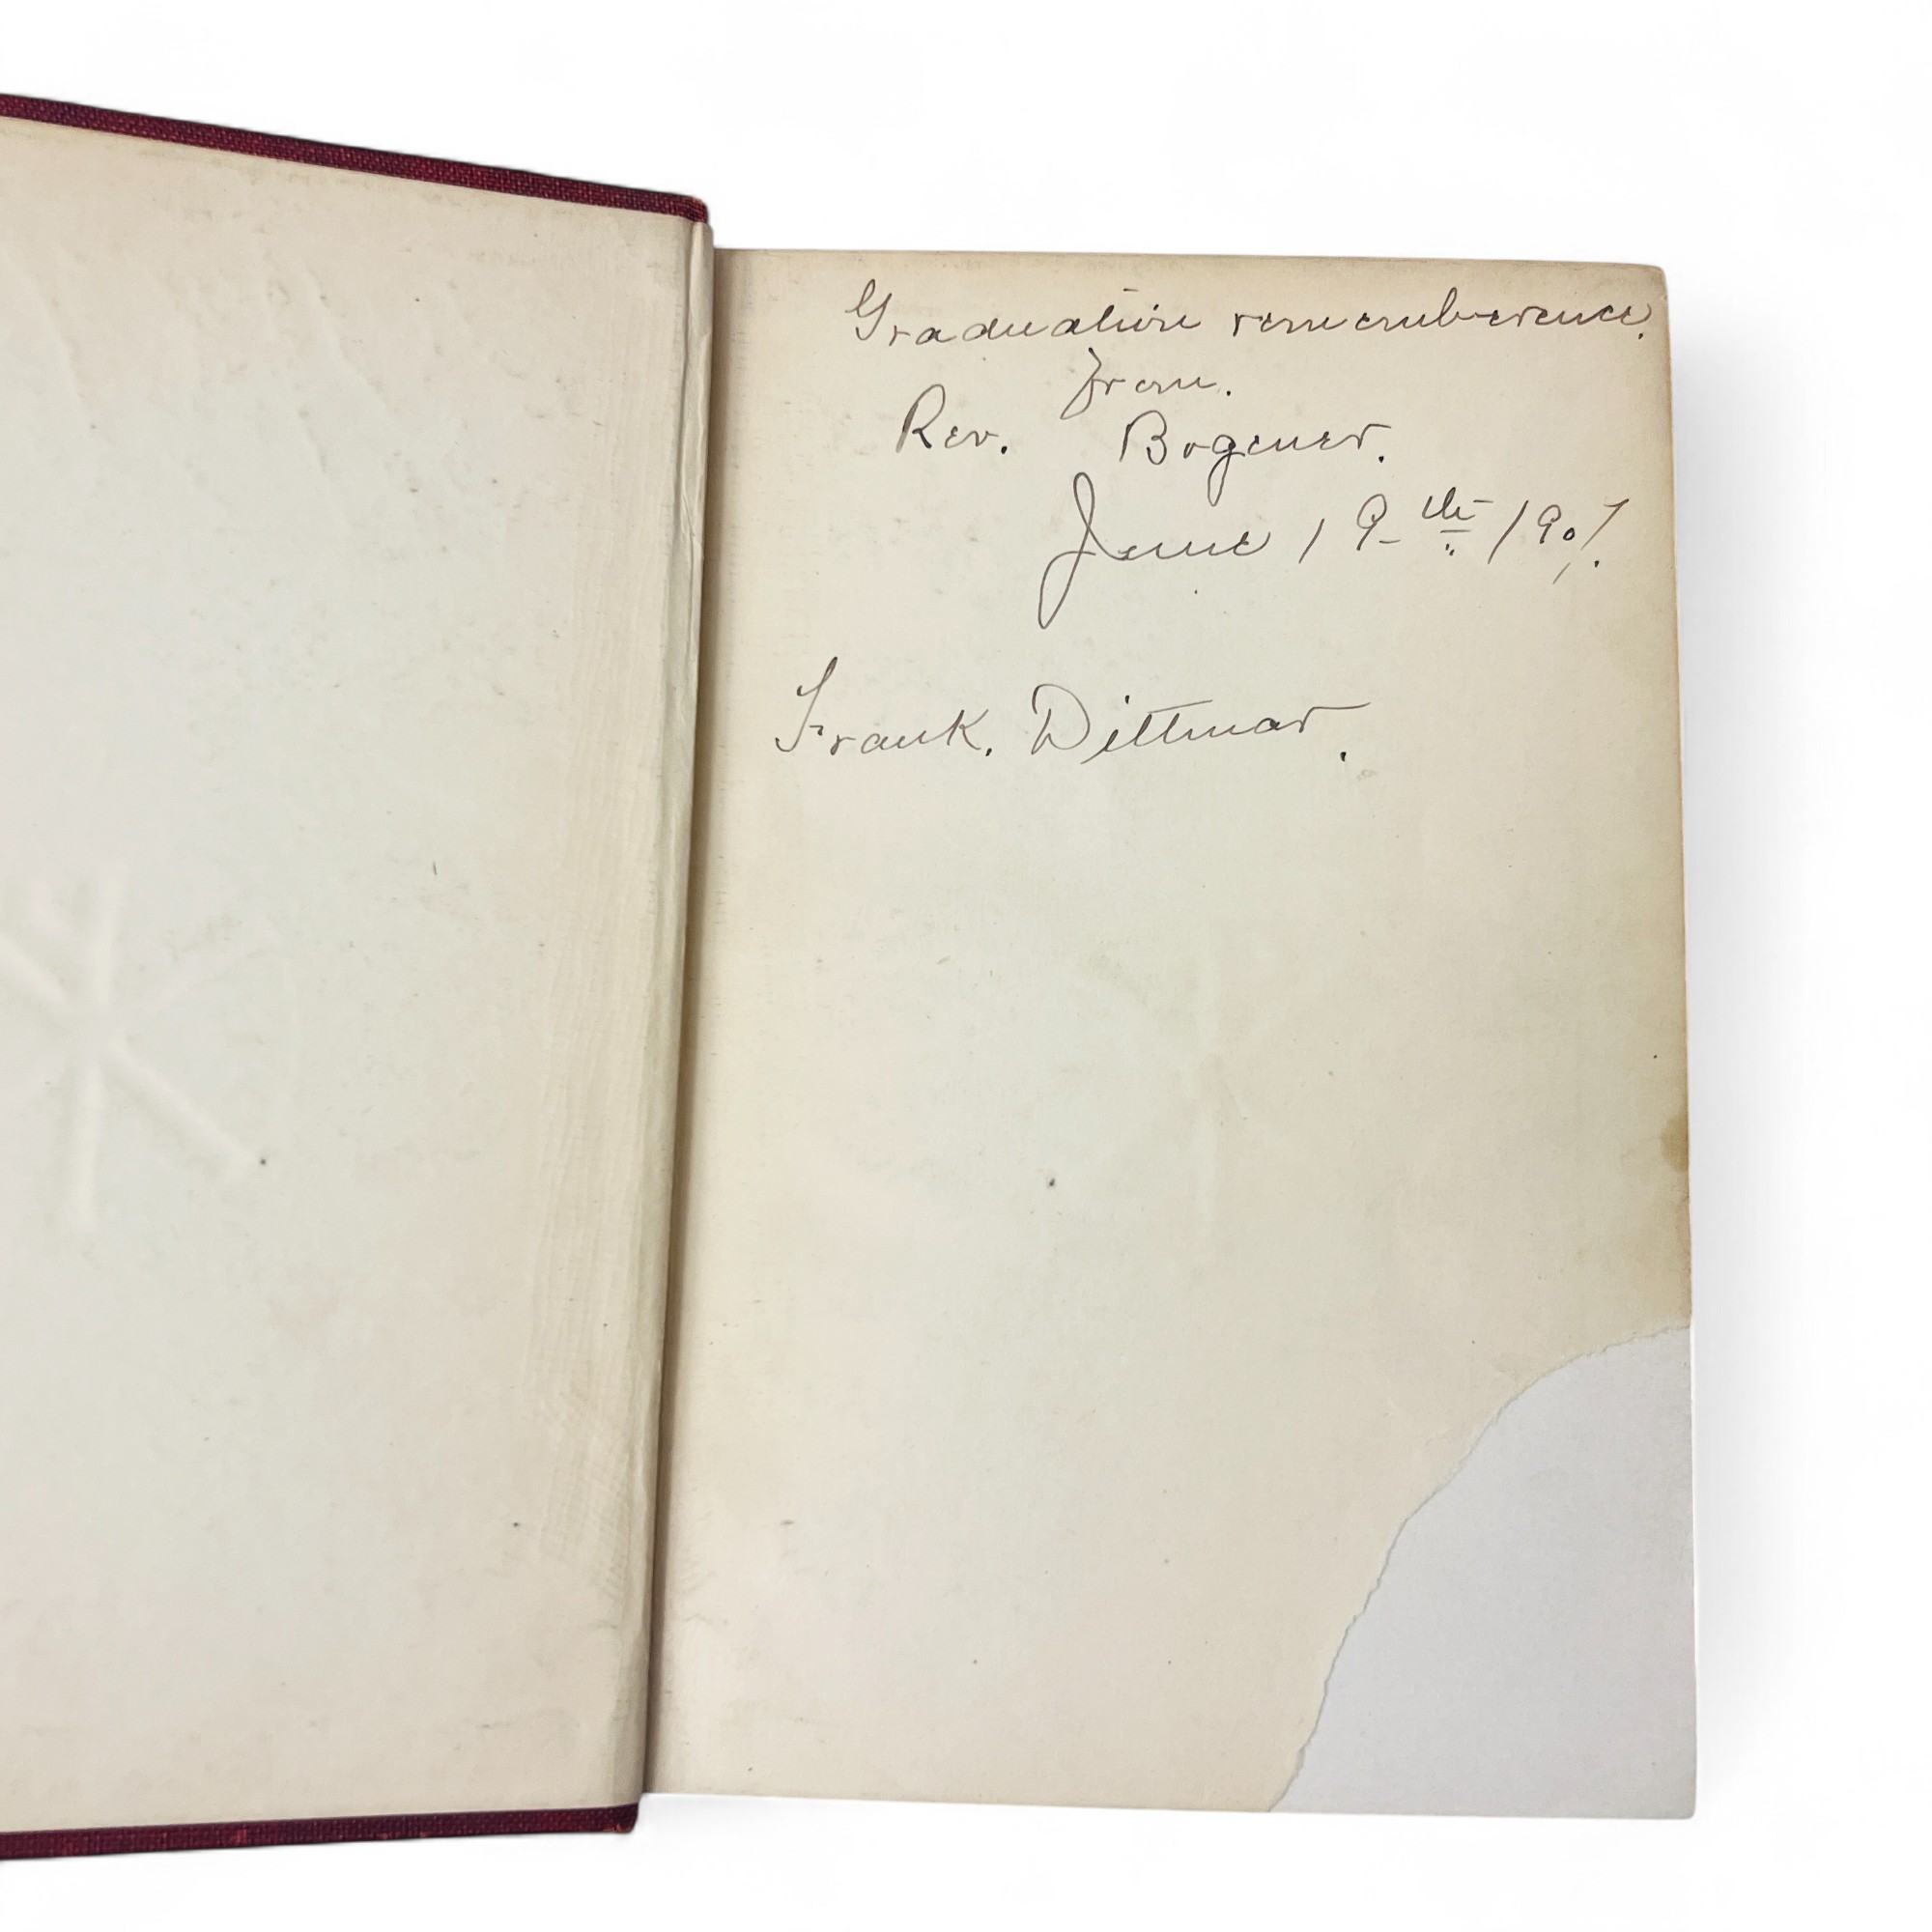 Graduation rememberence.
from.
Rev. Bogener.
June 19th 1907.
Frank. Dittmar.